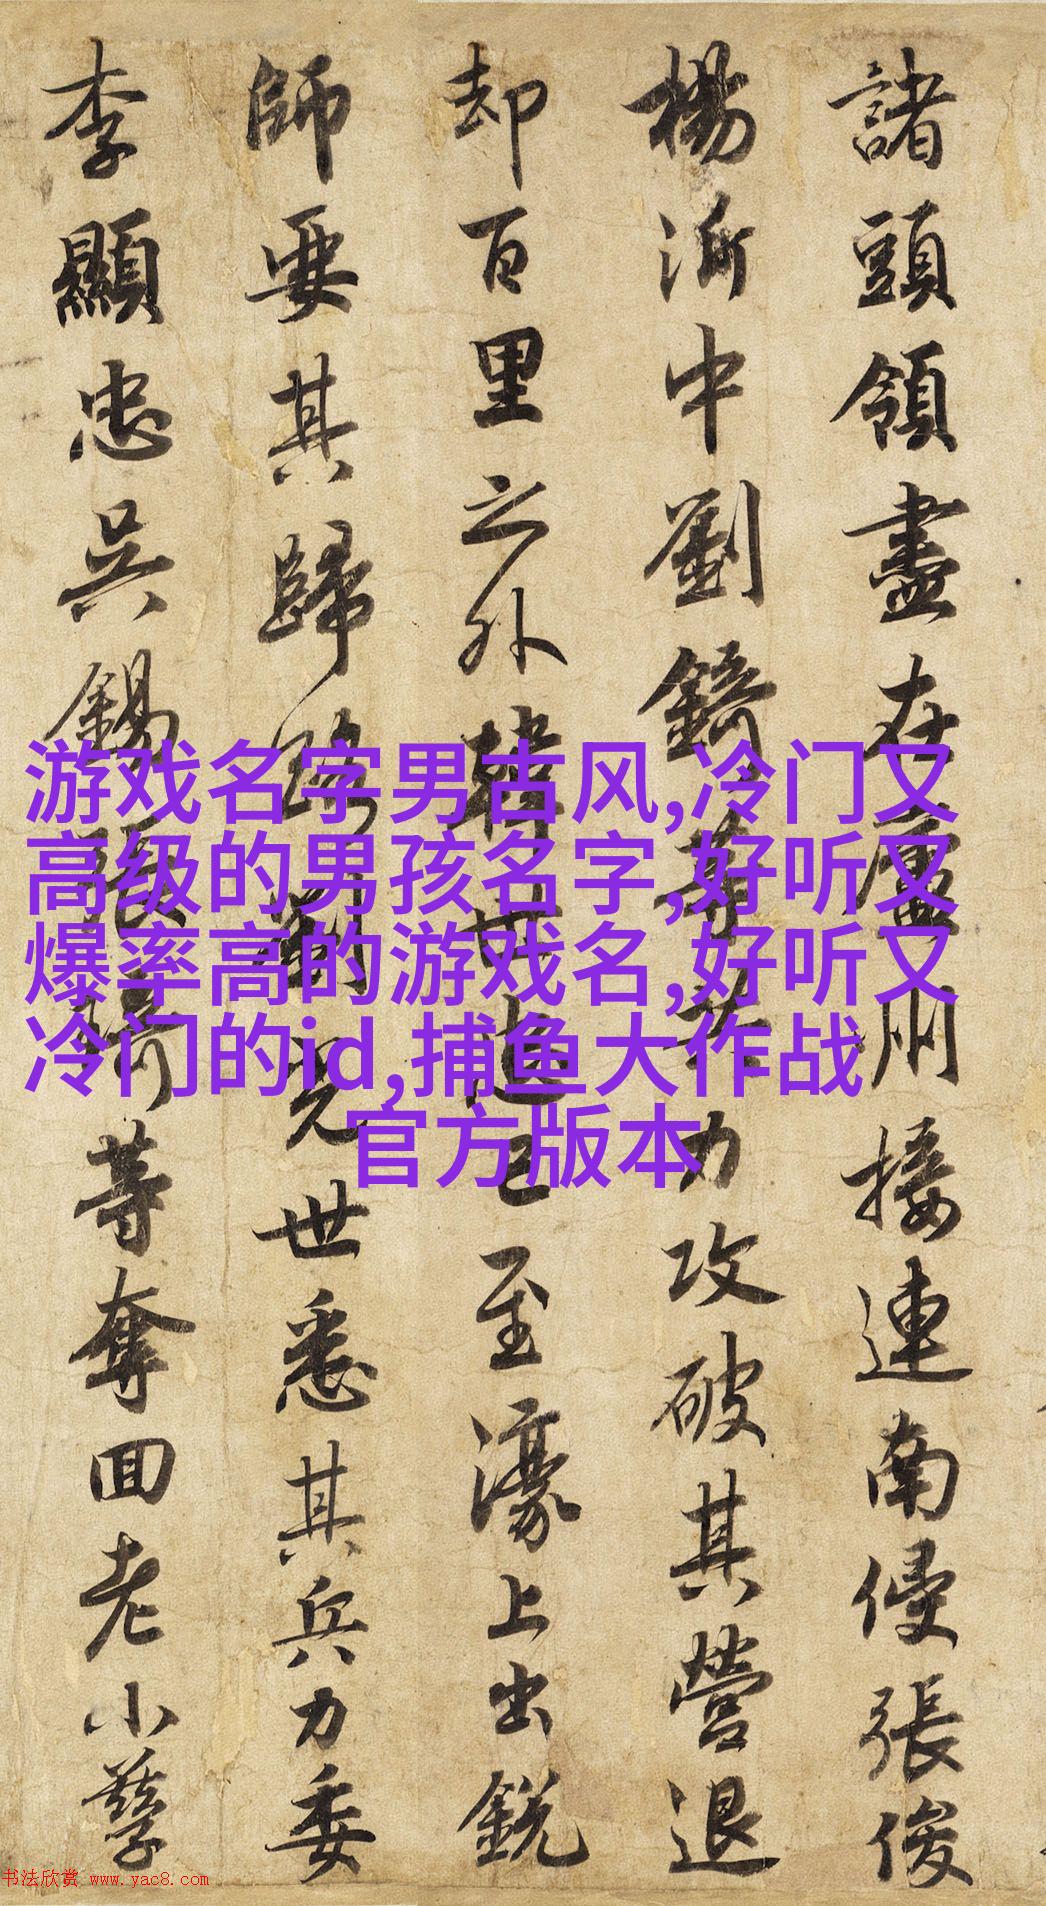 諸頭領盡在廬州接連南侵張俊
楊沂中劉錡等并力攻破其營退
却百里之外韓世已至濠上出銳
師要其歸路劉光世悉其兵力委
李顯忠吳錫張琦等奪回老小孳
游戏名字男古风,冷门又
高级的男孩名字,好听又
爆率高的游戏名,好听又
冷门的id,捕鱼大作战
官方版本
书法欣赏 www.yac8.com